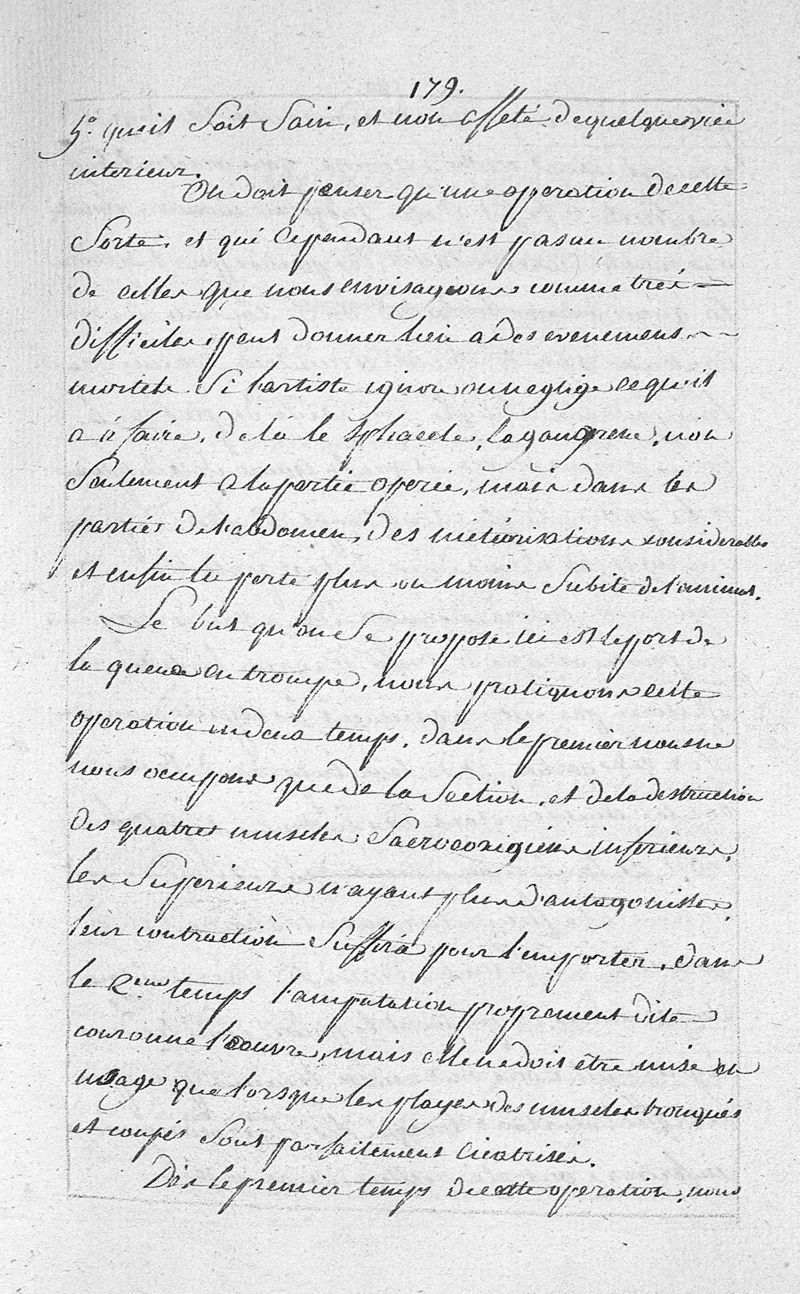 179.
5.° qu'il soit sain, et non affeté de quelque vice
interieur.
On doit penser qu'une operation de cette
sorte, et qui cependant n'est pas au nombre
de celles que nous envisageons comme tres=
difficiles, peut donner lieu a des evenemens
mortels si l'artiste ignore ou neglige ce qu'il
a à faire, de la le sphacele, la gangrene, non
seulement a la partie operée, mais dans les
parties de l'abdomen, des météorisations considerables
et enfin la perte plus ou moins subite de l'animal.
Le but qu'on se propose ici est le port de
la queue en trompe, nous pratiquons cette
operation en deux temps, dans le premier nous ne
nous occupons que de la section, et de la destruction
des quatres muscles sacrococigiens inferieurs,
les superieurs n'ayant plus d'antagonistes,
leur contraction suffira pour l'emporter, dans
le 2eme temps l'amputation proprement dite
couronne l'œuvre, mais elle ne doit etre mise en
usage que lorsque les playes des muscles tronqués
et coupés sont parfaitement cicatrisées.
Dès le premier temps de cette operation, nous